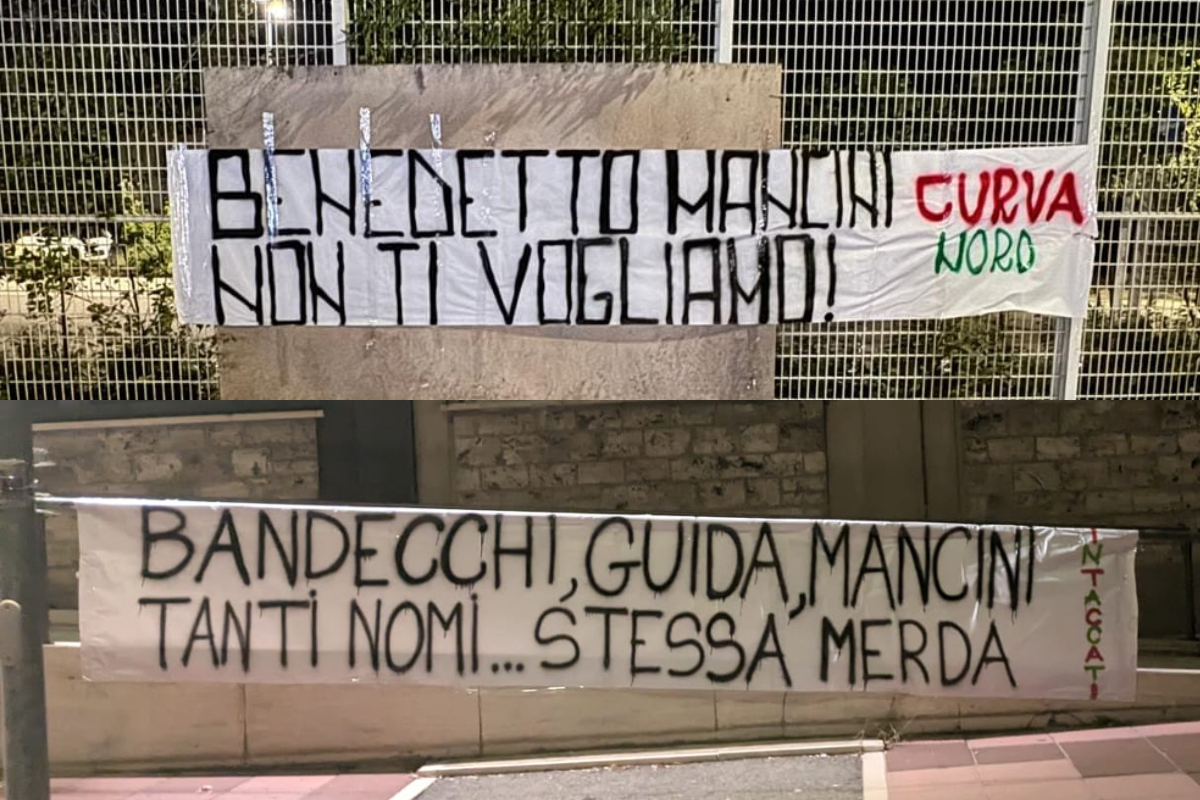 BENEDETTO MANCINI
NON TI VOGLIAMO!
CURVA
NORD
BANDECCHI, GUIDA, MANCINI
TANTI NOMI... STESSA MERDA
INTACCATI